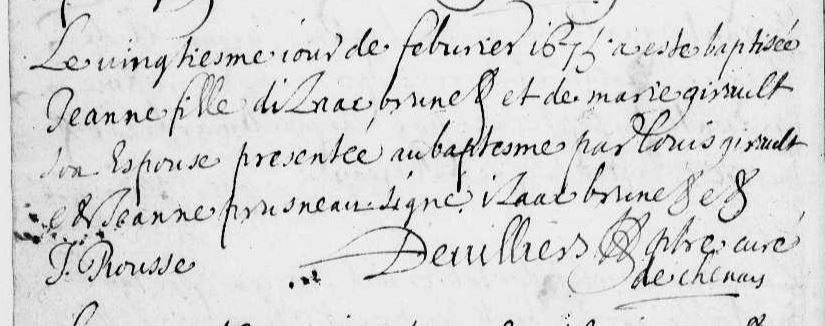 Le vingtiesme iour de febvrier 1675 a este baptisée
Jeanne fille d'iZaac brunet et de marie girault
son Espouse presentée au baptesme par Louis girault
et Jeanne prusneau signé iZaac brunet et
J. Rousse Devilliers ptre curé
de chenay